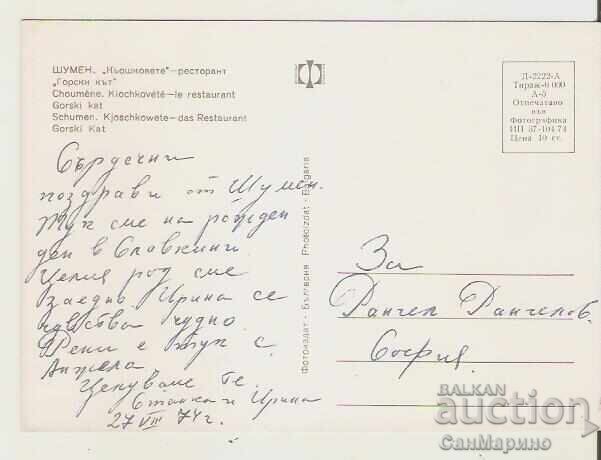 ШУМЕН. „Кьошковете“—ресторант
„Горски кът“
Choumène. Kiochkovété—le restaurant
Gorski kat
Schumen. Kjoschkowete—das Restaurant
Gorski Kat
Д-2222-А
Тираж-6 000
А-5
Отпечатано
във
Фотографика
ИП 37-104 74
Цена 10 ст.
Фотоиздат · България Photoizdat · Bulgaria
Сърдечни
поздрави от Шумен.
Тук сме на рожден
ден в Славкини
Целия род сме
заедно. Ирина се
чувства чудно.
Рени е тук с
Анжела
Целуваме Те,
Станка и Ирина
27 VIII 74 г.
За
Рангел Рангелов
София
BALKAN
auction
СанМарино